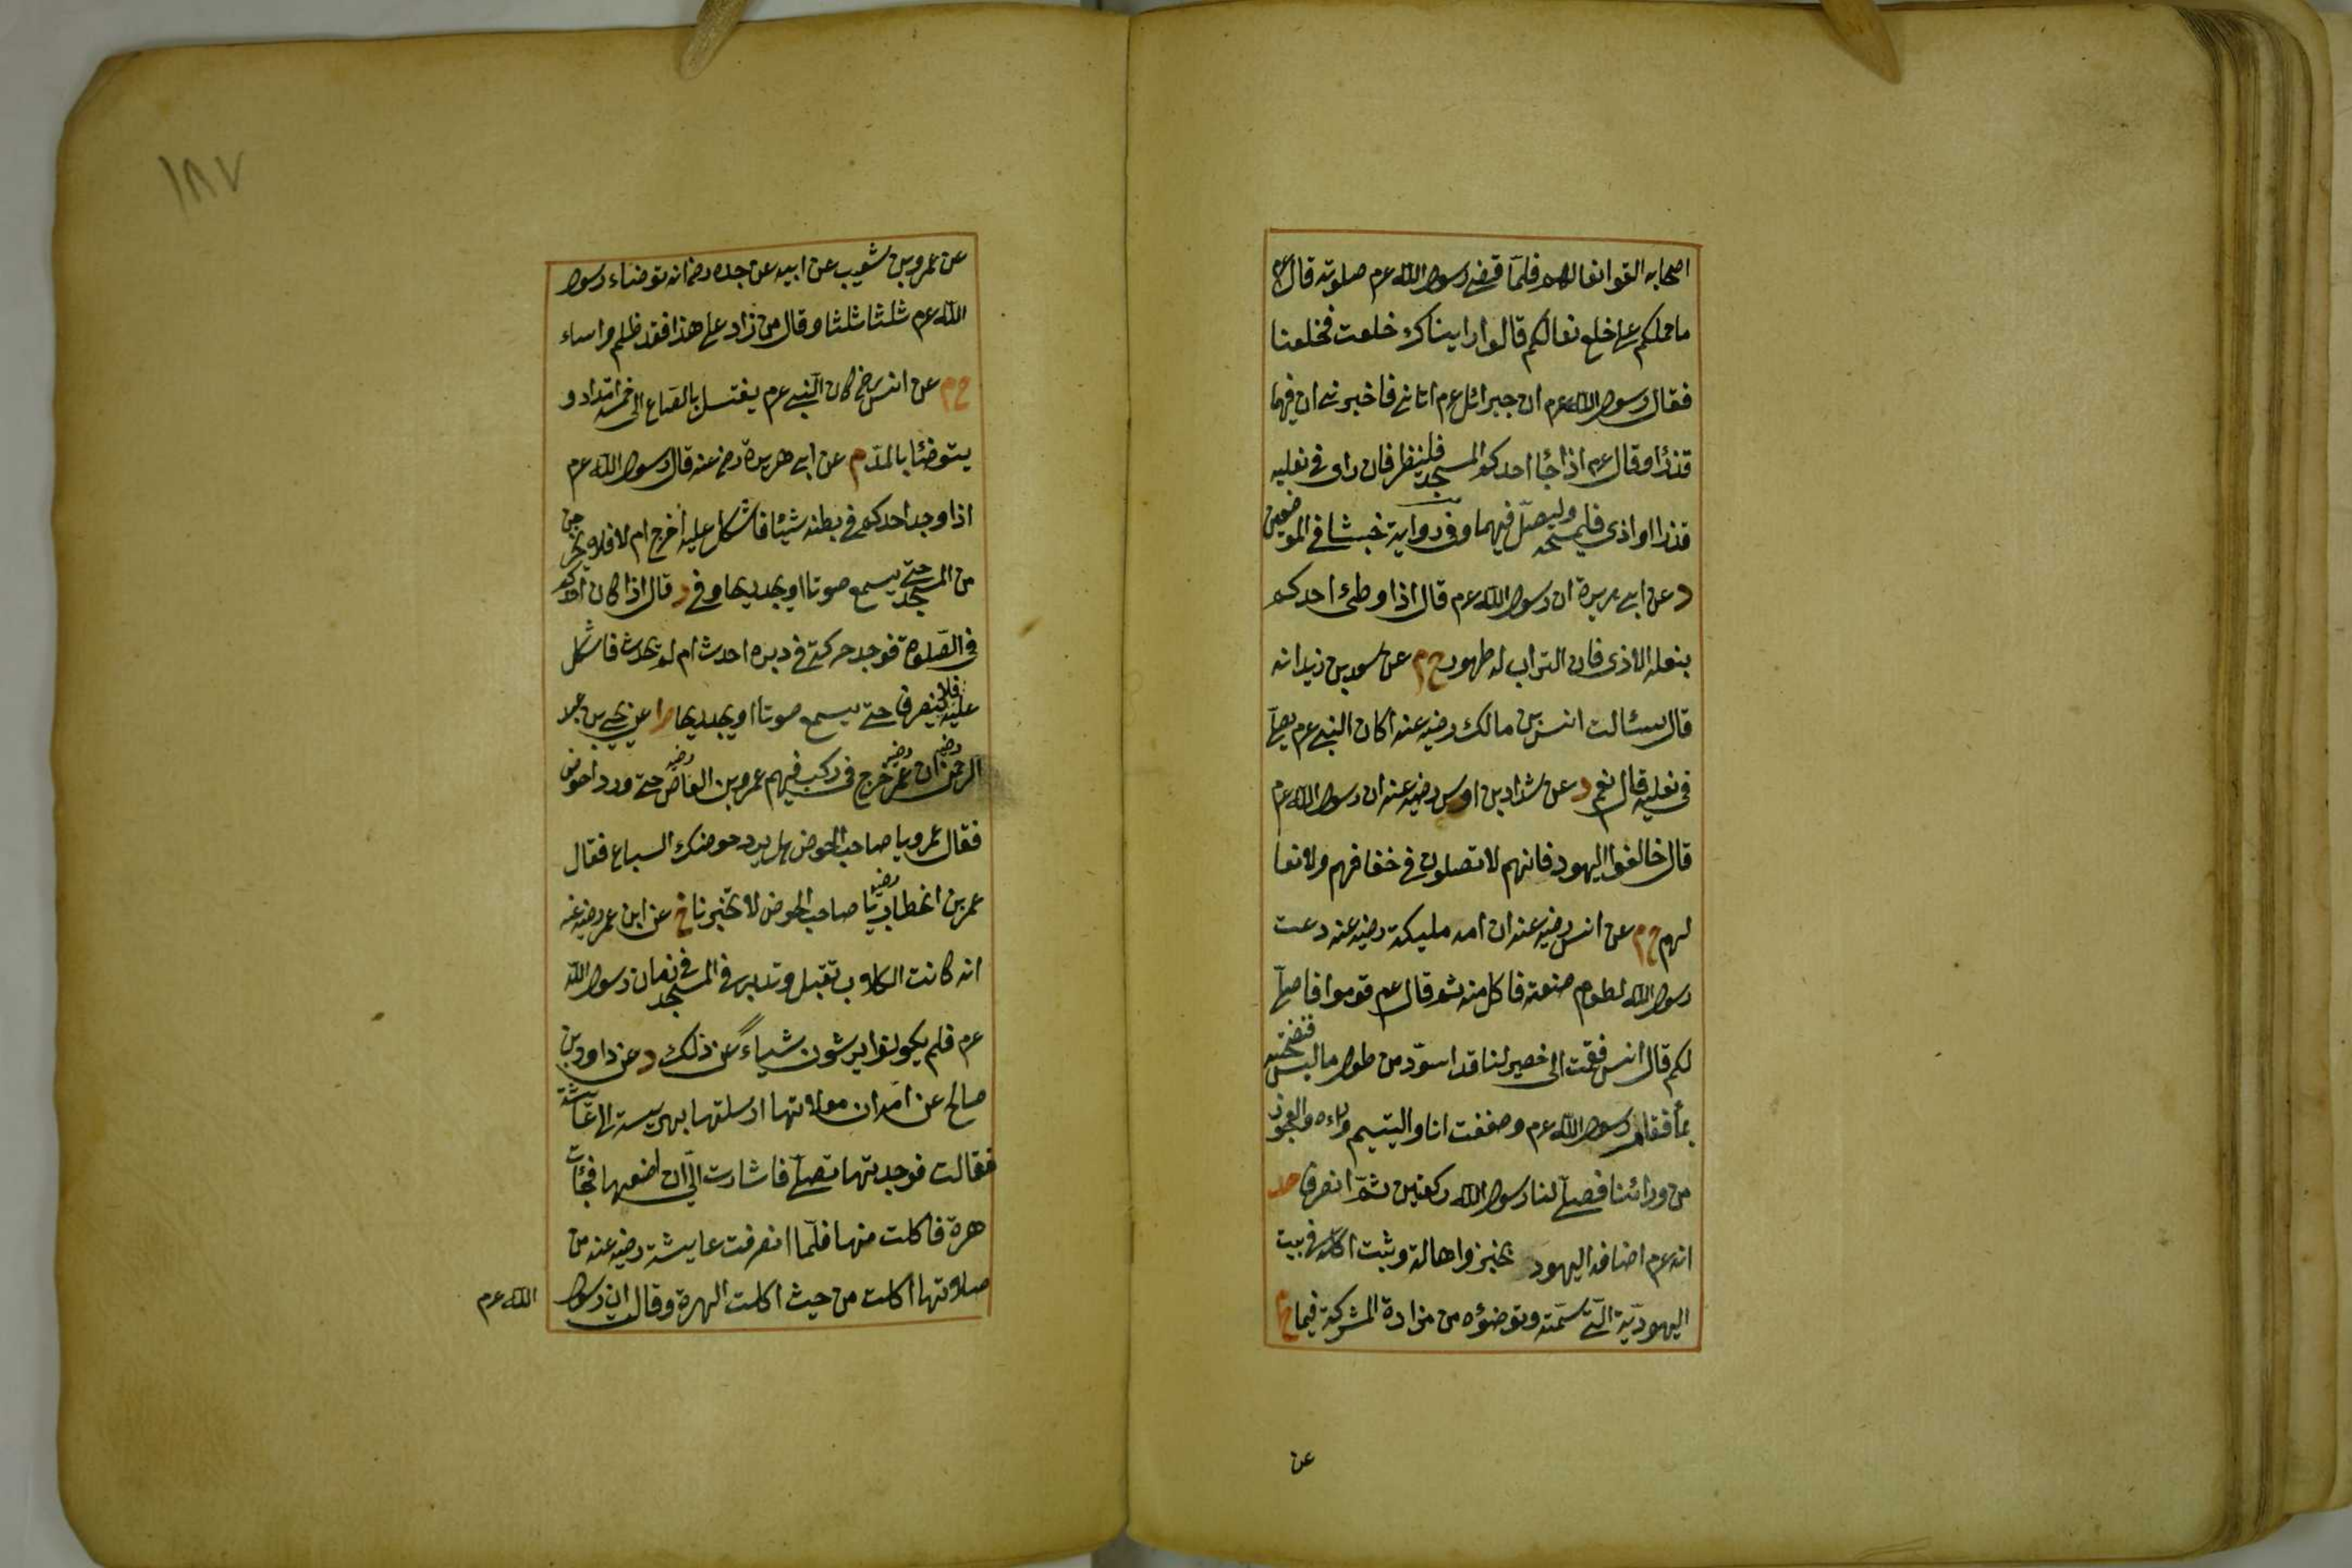 اصحابه القوا نعالهم فلمّا قضى رسول الله عم صلوته قال عم
ما حملكم على خلع نعالكم قالوا رايناك خلعت فخلعنا
فقال رسول الله عم ان جبرائل عم اتانى فاخبرنى ان فيهما
قذرًا وقال عم اذا جاء احدكم المسجد فلينظر فان راى فى نعليه
قذرا او اذى فليمسحه وليصلّ فيهما وفى رواية خبثا فى الموضعين
د عن ابى هريرة ان رسول الله عم قال اذا وطئ احدكم
بنعله الاذى فان التراب له طهور خ م عن سعيد بن زيد انه
قال سئالت انس بن مالك رضى عنه اكان النبى عم يصلّى
فى نعليه قال نعم د عن شداد بن اوس رضى عنه ان رسول الله عم
قال خالفوا اليهود فانهم لا تصلون فى خفافهم ولا نعا
لهم خ م عن انس رضى عنه ان امه مليكة رضى عنه دعت
رسول الله لطعام صنعته فاكل منه ثم قال عم قوموا فاصلّى
لكم قال انس فقمت الى حصير لنا قد اسودّ من طول ما لبس فنضحته
بماء فقام رسول الله عم وصففت انا واليتيم وراءه والعجوز
من ورائنا فصلّى لنا رسول الله ركعتين ثمّ انصرف حد
انه عم اضافه اليهود بخبز واهالة وثبت اكله فى بيت
اليهوديّة الّتى سمّته وتوضؤه من مزادة المشركة فيما خ م
عن
١٨٧
عن عمرو بن شعيب عن ابيه عن جده رض انه توضاء رسول
الله عم ثلثا ثلثا وقال من زاد على هذا فقد ظلم واساء
خ م عن انس رض كان النّبى عم يغتسل بالصاع الى خمسة امداد و
يتوضئا بالمدّ م عن ابى هريرة رض عنه قال رسول الله عم
اذا وجد احدكم فى بطنه شيئا فاشكل عليه أخرج ام لا فلا يخرجن
من المسجد حتى يسمع صوتا او يجد ريحا وفى د قال اذا كان احدكم
فى الصّلوة فوجد حركة فى دبره احدث ام لم يحدث فاشكل
عليه فلا ينصرف حتى يسمع صوتا او يجد ريحا ط عن يحيى بن عبد
الرحمن ان عمر رضى خرج فى ركب فيهم عمرو بن العاص رضى حتى ورد احوض
فقال عمرو يا صاحب الحوض هل يرد حوضك السباع فقال
عمر بن الخطاب رضى يا صاحب الحوض لا تخبرنا خ عن ابن عمر رضى عنه
انه كانت الكلاب تقبل وتدبر فى المسجد فى زمان رسول الله
عم فلم يكونوا يرشون شياء عن ذلك د عن داود بن
صالح عن امّه ان مولاتها ارسلتها بهريسة الى عائشة
فقالت فوجدتها تصلّى فاشارت الىّ ان اضعيها فجائت
هرة فاكلت منها فلمّا انصرفت عايشة رضى عنه من
صلاتها اكلت من حيث اكلت الهرة وقال ان رسول
الله عم